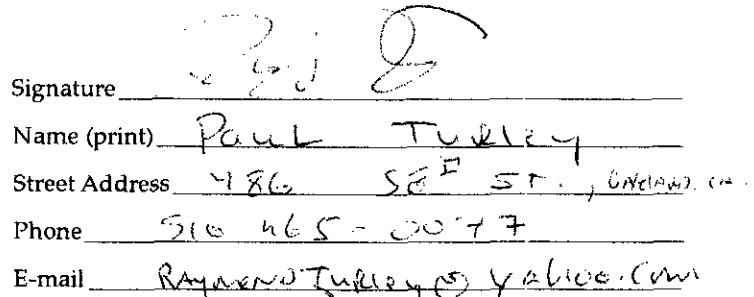 Signature
Name (print) Paul Turley
Street Address 486 ST.,
Phone 510 465-0077
E-mail RAYMONDTURLEY@yahoo.com